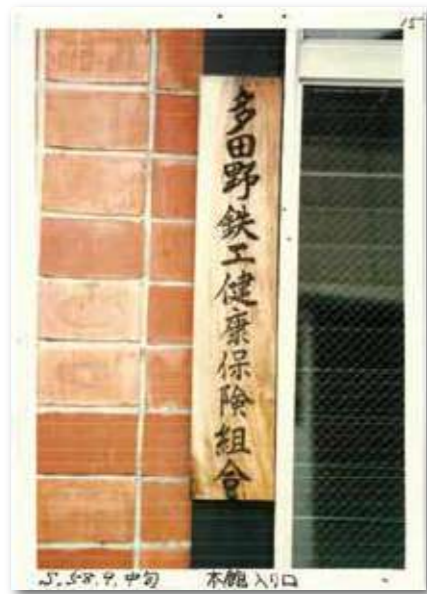 15
多田野鉄工健康保険組合
S.58.9.中旬 本館入り口